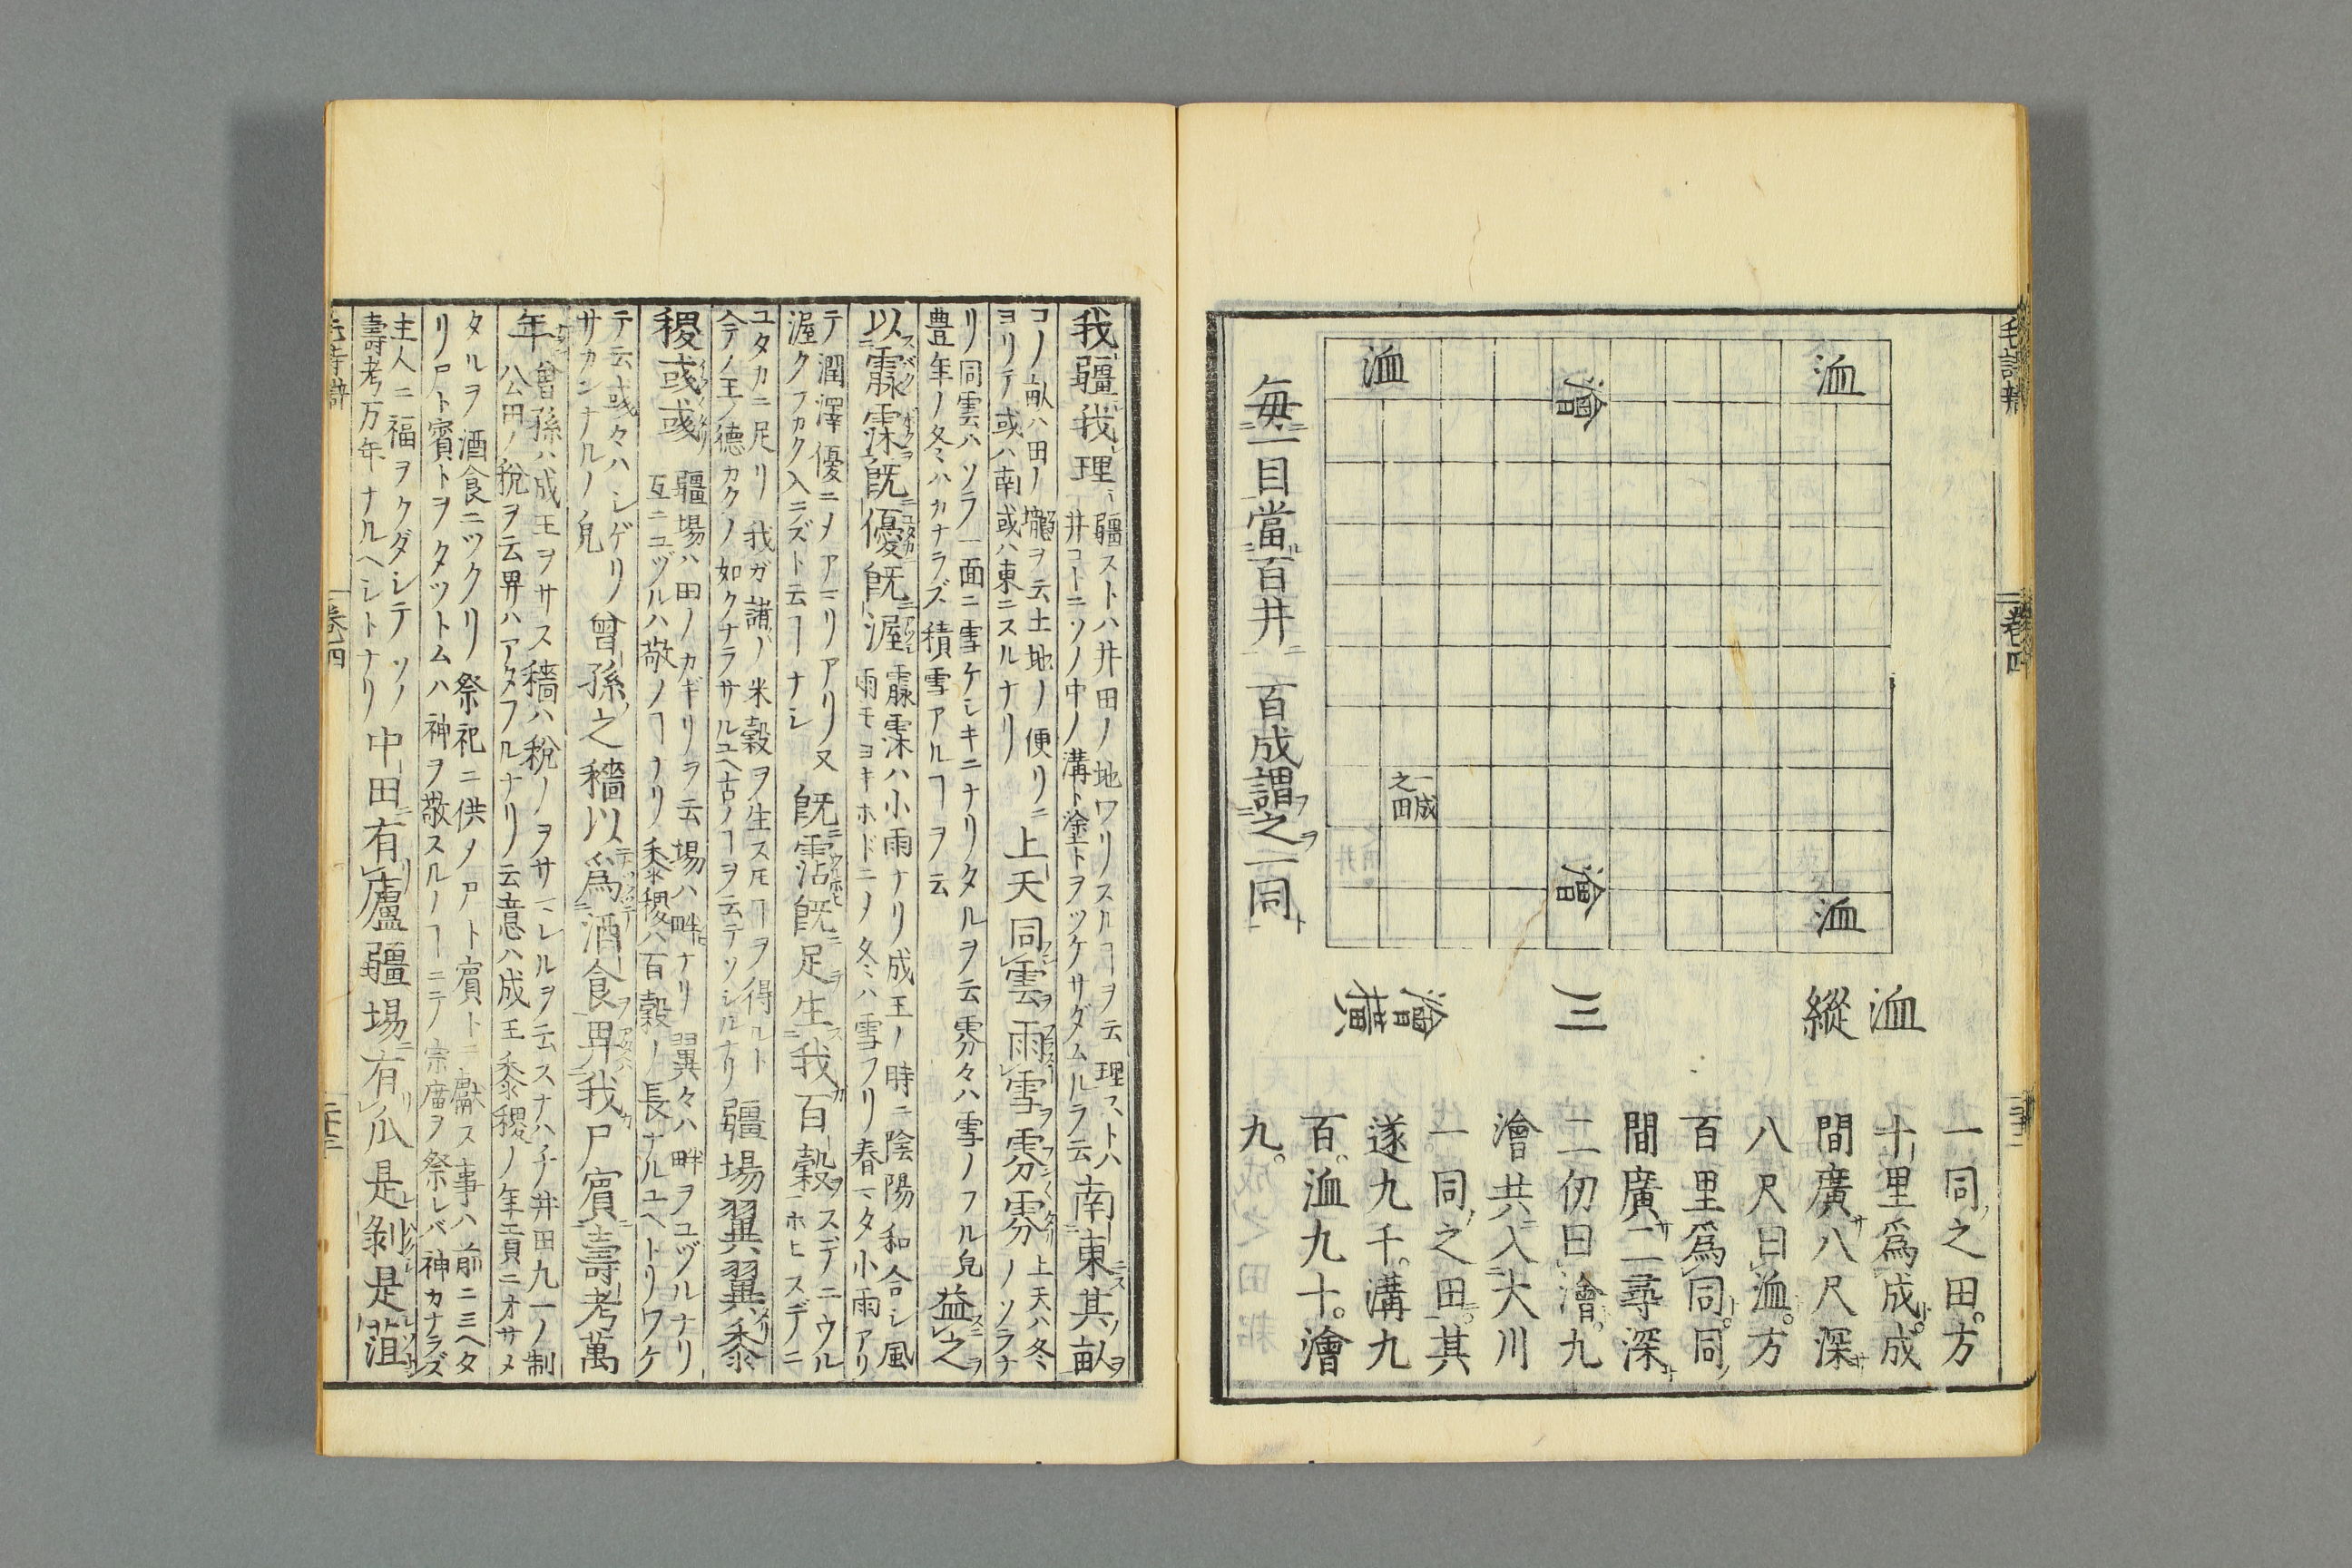 一同之田。方
十里爲成。成
間廣八尺深
八尺曰洫。方
百里爲同。同
間廣二尋深
二仞曰澮。九
澮共入大川
一同之田。其
遂九千。溝九
百。洫九十。澮
九。
洫縱
三
澮横
洫 澮 洫
一成之田
澮 洫
每一目當百井 百成謂之一同
卷四
我疆我理 疆ストハ井田ノ地ワリスルヿヲ云理ストハ
井コトニソノ中ノ溝ト塗トヲツケサダムルヲ云
南東其畝
コノ畝ハ田ノ壠ヲ云土地ノ便リニ
ヨリテ或ハ南或ハ東ニスルナリ
上天同雲雨雪雰雰 上天ハ冬ノソラナ
リ同雲ハソラ一面ニ雪ケシキニナリタルヲ云雰々ハ雪ノフル皃
豊年ノ冬ハカナラズ積雪アルヿヲ云
益之
以霢霂既優既渥 霢霂ハ小雨ナリ成王ノ時ニ陰陽和合シ風
雨モヨキホドニノ冬ハ雪フリ春マタ小雨アリ
テ潤澤優ニノアマリアリ又
渥クフカク入ニズト云ヿナシ
既霑既足生我百穀 スデニウル
ホヒスデニ
ユタカニ足リ我ガ諸ノ米穀ヲ生スルヿヲ得ルト
今テノ王ノ德カクノ如クナラサルユヘ古ノヿヲ云テソシルナリ
疆埸翼翼黍
稷彧彧 疆埸ハ田ノカギリヲ云埸ハ畔ナリ翼々ハ畔ヲユヅルナリ
互ニユヅルハ敬ノヿナリ黍稷ハ百穀ノ長ナルユヘトリワケ
テ云彧々ハシゲリ
サカンナルノ皃
曾孫之穡以爲酒食畀我尸賓壽考萬
年 曾孫ハ成王ヲサス穡ハ税ノヲサマレルヲ云スナハチ井田九一ノ制
公田ノ税ヲ云畀ハアタフルナリ云意ハ成王黍稷ノ年貢ニオサメ
タルヲ酒食ニツクリ祭祀ニ供メアト賓トニ獻ス事ハ前ニ三ヘタ
リ尸ト賓トヲタツトムハ神ヲ敬スルノヿニテ宗廟ヲ祭レバ神カナラズ
主人ニ福ヲクダシテソノ
壽考万年ナルヘシトナリ
中田有廬疆埸有瓜是剝是菹
卷四